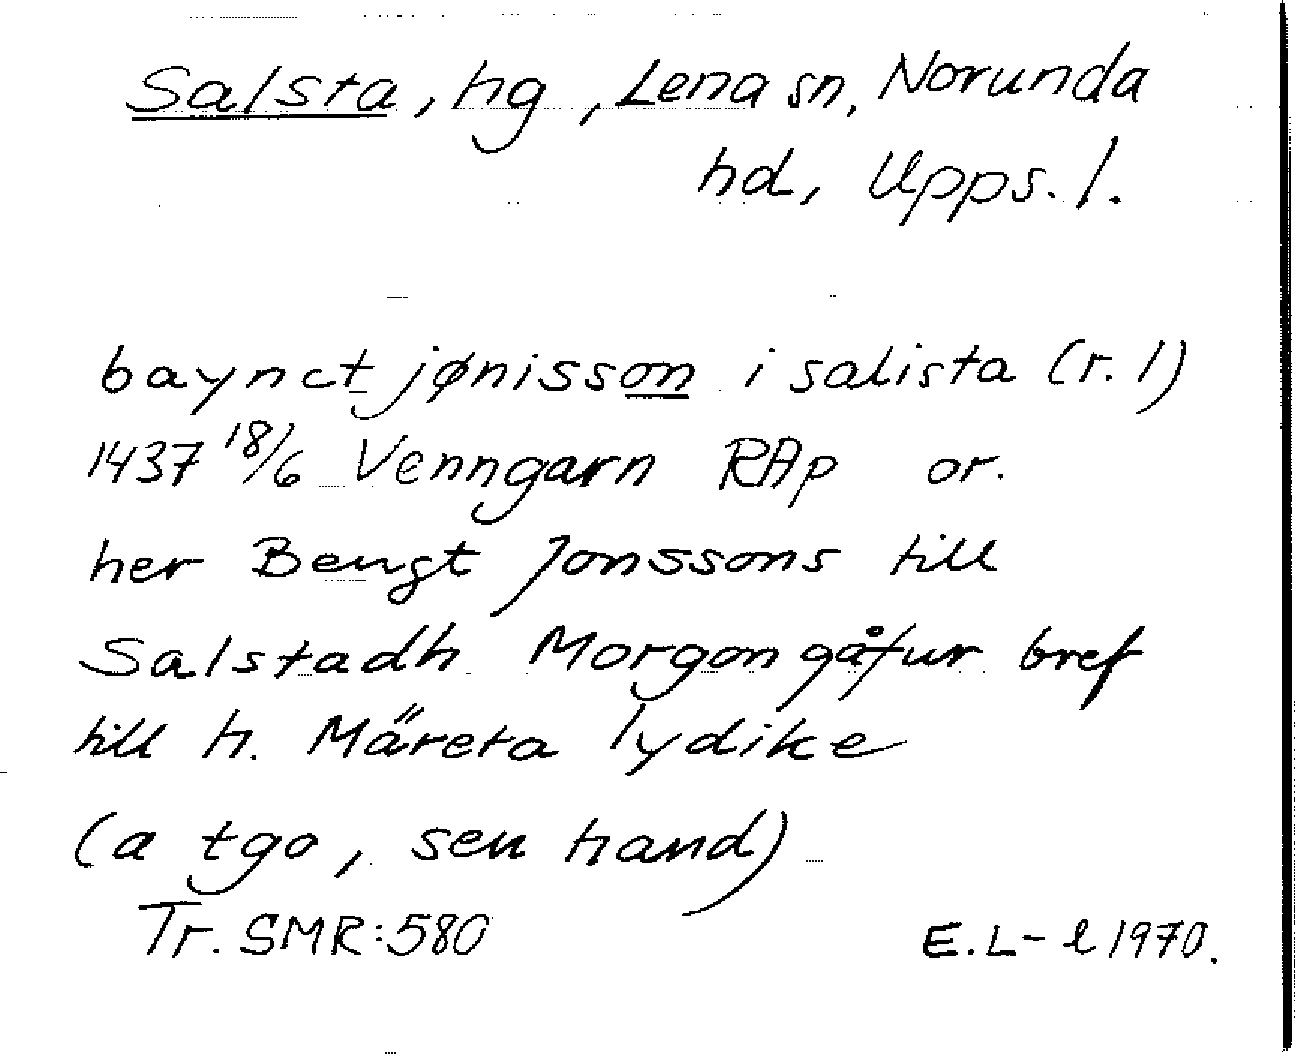 Salsta, hg, Lena sn, Norunda
hd, Upps. l.
baynct jønisson i salista (r. 1)
1437 18/6 Venngarn RAp or.
her Bengt Jonssons till
Salstadh Morgongåfur bref
till h. Märeta lydike
(a tgo, sen hand)
Tr. SMR:580 E.L-l 1970.